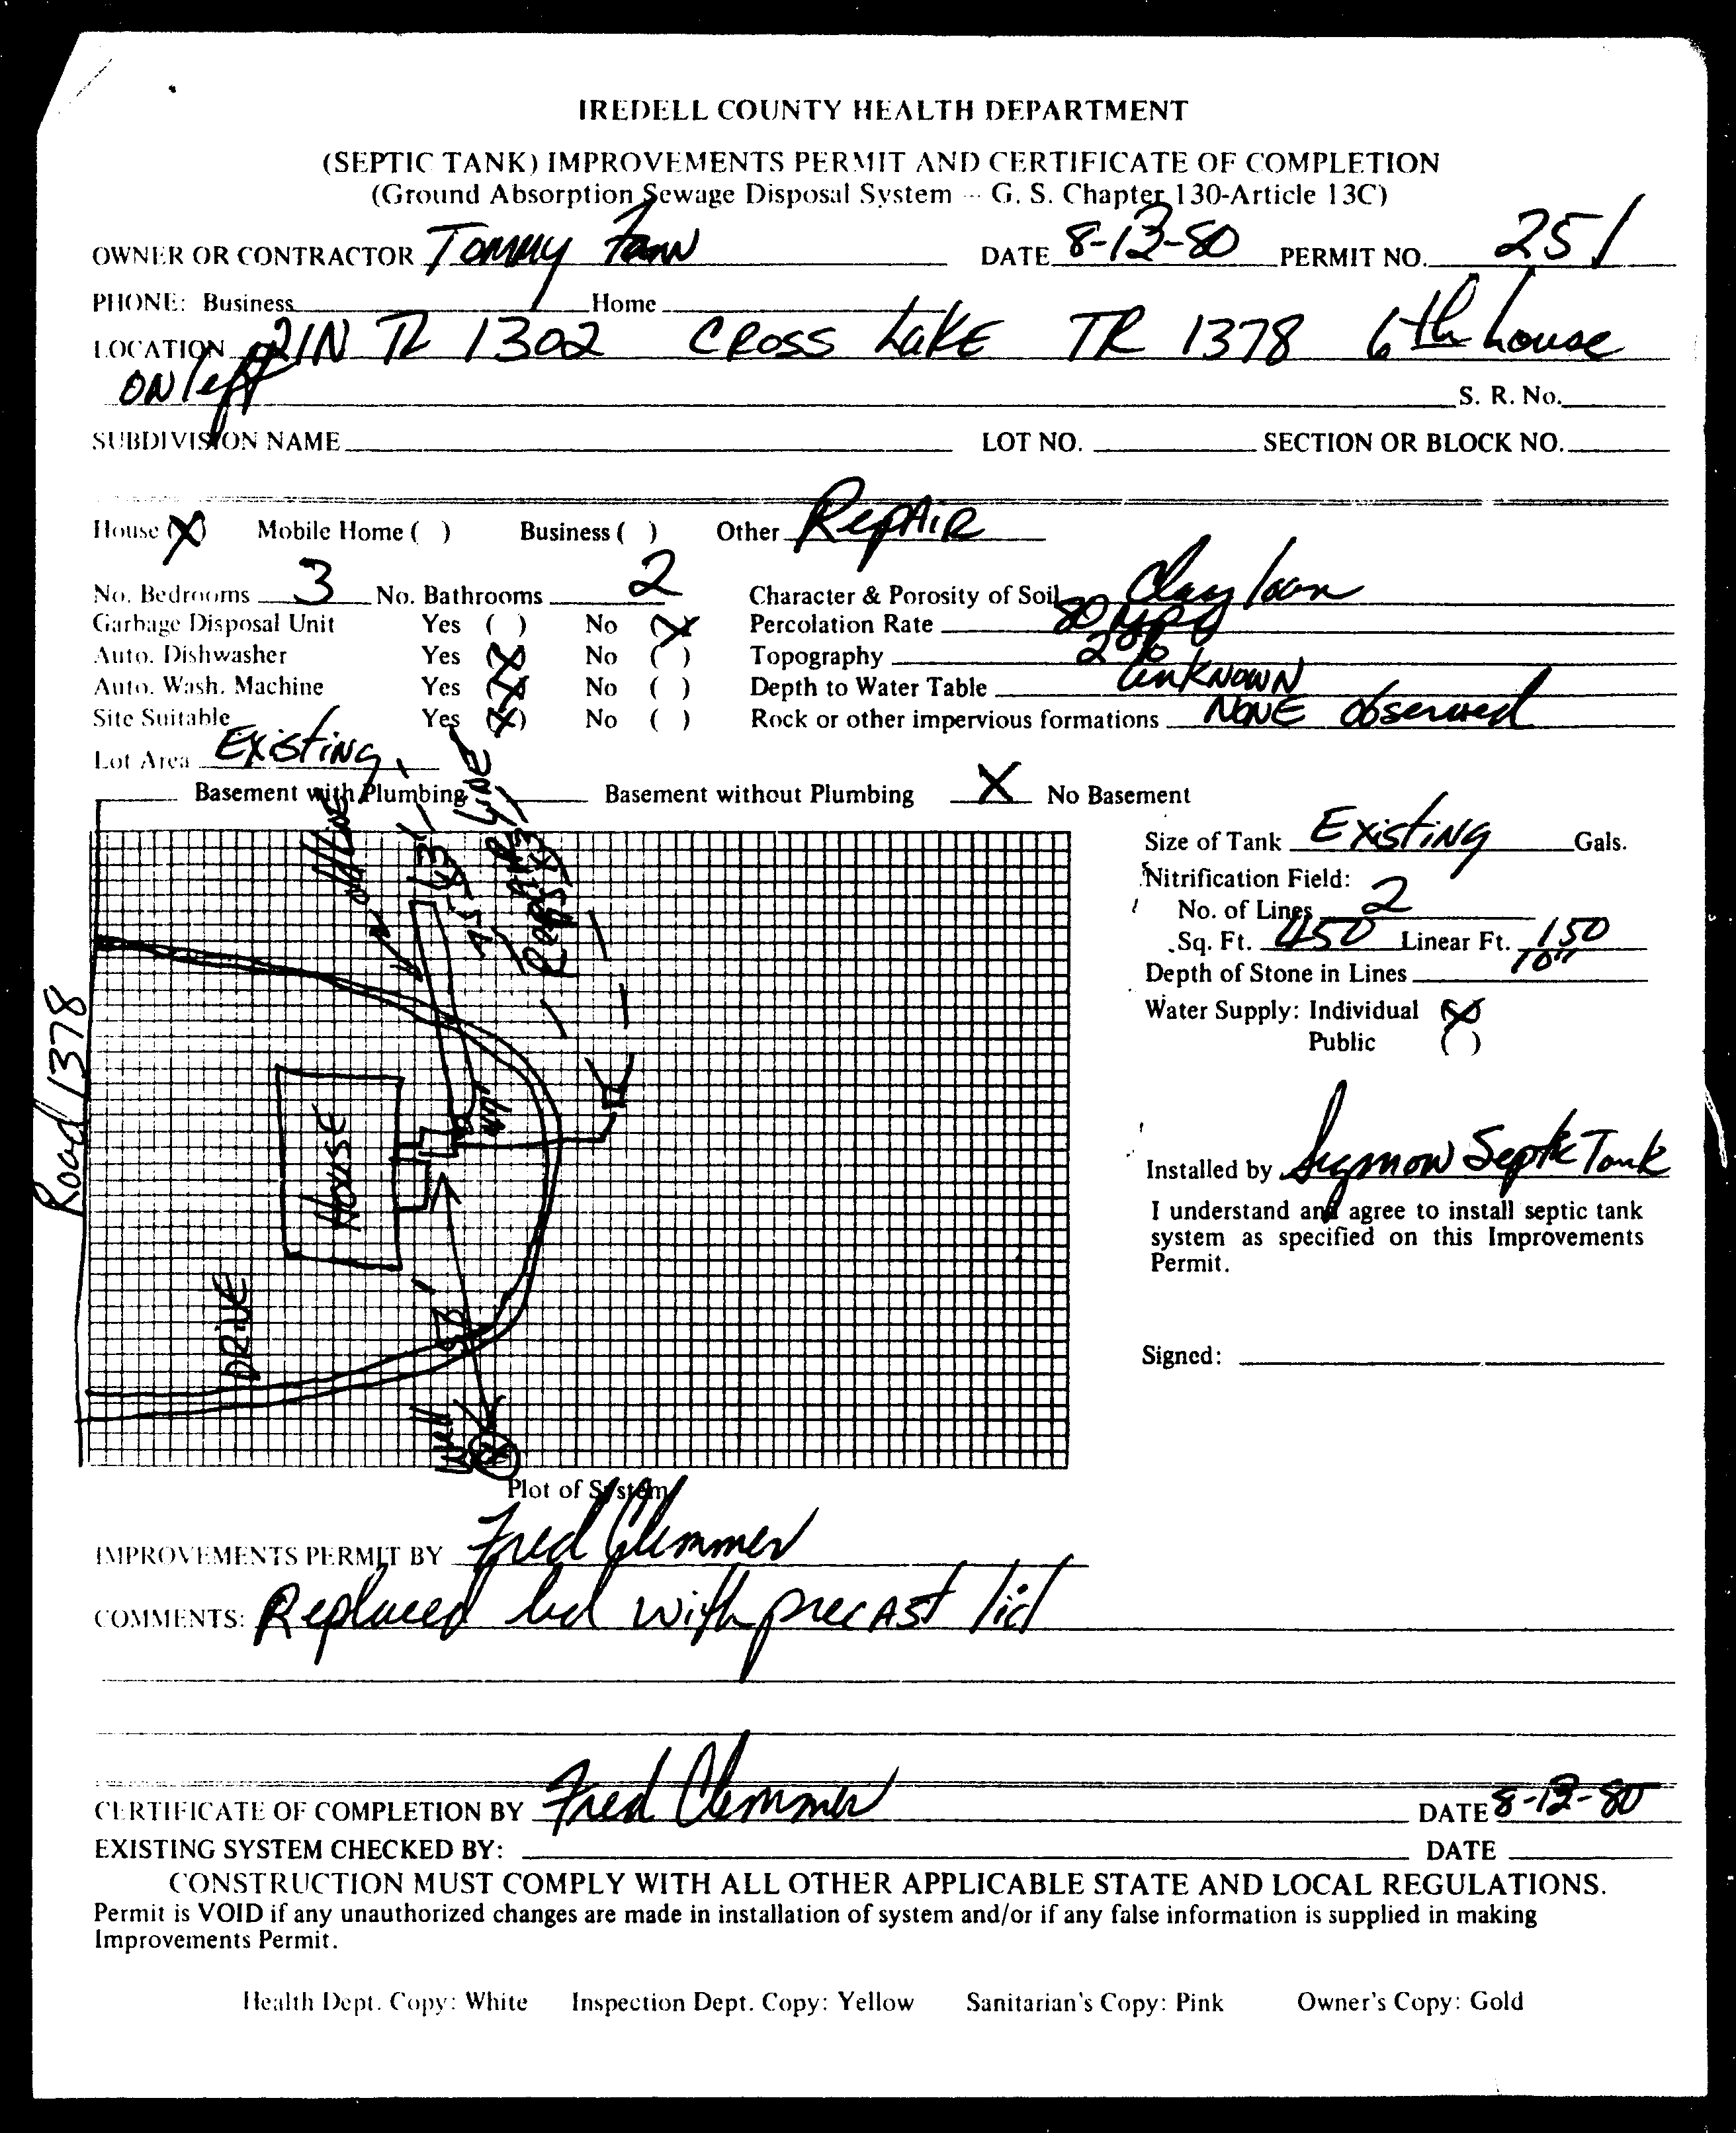 IREDELL COUNTY HEALTH DEPARTMENT
(SEPTIC TANK) IMPROVEMENTS PERMIT AND CERTIFICATE OF COMPLETION
(Ground Absorption Sewage Disposal System -- G. S. Chapter 130-Article 13C)
OWNER OR CONTRACTOR Tommy Fann DATE 8-13-80 PERMIT NO. 251
PHONE: Business Home
LOCATION 21N TL 1302 CROSS LAKE TR 1378 6th house
ON left S. R. No.
SUBDIVISION NAME LOT NO. SECTION OR BLOCK NO.
House (X) Mobile Home ( ) Business ( ) Other RepAiR
No. Bedrooms 3 No. Bathrooms 2 Character & Porosity of Soil Clay loam
Garbage Disposal Unit Yes ( ) No (X) Percolation Rate 80 gpd
Auto. Dishwasher Yes (X) No ( ) Topography 2%
Auto. Wash. Machine Yes (X) No ( ) Depth to Water Table UnKNOWN
Site Suitable Yes (X) No ( ) Rock or other impervious formations NONE observed
Lot Area Existing
Basement with Plumbing Basement without Plumbing X No Basement
Size of Tank Existing Gals.
Nitrification Field:
No. of Lines 2
Sq. Ft. 450 Linear Ft. 150
Depth of Stone in Lines 10"
Water Supply: Individual (X)
Public ( )
Installed by Septic Tank
I understand and agree to install septic tank
system as specified on this Improvements
Permit.
Signed:
Road 1378
old Line
75' x3'
REPAIR LINE
HOUSE
DRIVE
Well
Plot of System
IMPROVEMENTS PERMIT BY Fred Clemmer
COMMENTS: Replaced lid with precAST lid
CERTIFICATE OF COMPLETION BY Fred Clemmer DATE 8-13-80
EXISTING SYSTEM CHECKED BY: DATE
CONSTRUCTION MUST COMPLY WITH ALL OTHER APPLICABLE STATE AND LOCAL REGULATIONS.
Permit is VOID if any unauthorized changes are made in installation of system and/or if any false information is supplied in making
Improvements Permit.
Health Dept. Copy: White Inspection Dept. Copy: Yellow Sanitarian's Copy: Pink Owner's Copy: Gold